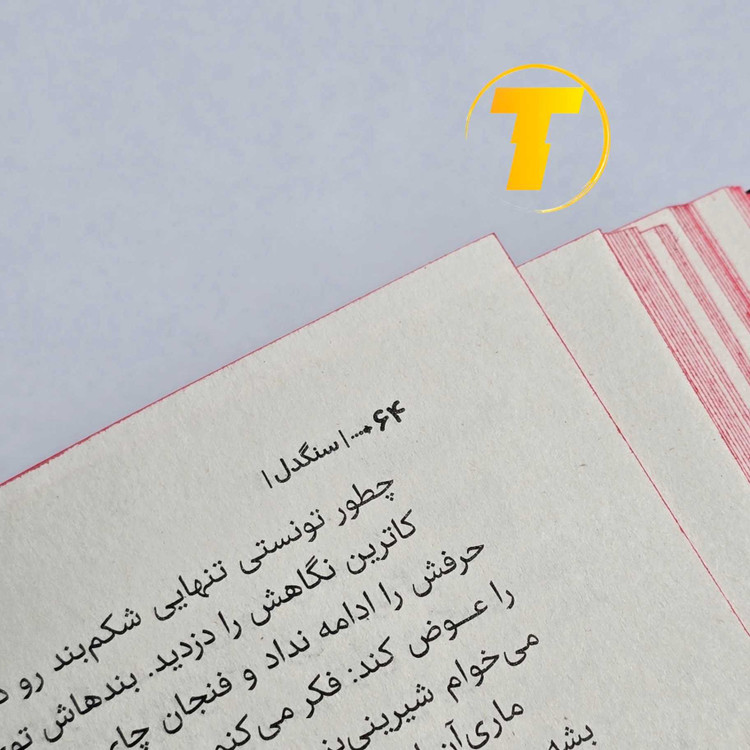 T
۶۴ ····| سنگدل |
چطور تونستی تنهایی شکم‌بند رو
کاترین نگاهش را دزدید. بندهاش
حرفش را ادامه نداد و فنجان
را عـوض کند: فکر می‌کنم
می‌خوام
ماری‌آن
بشه